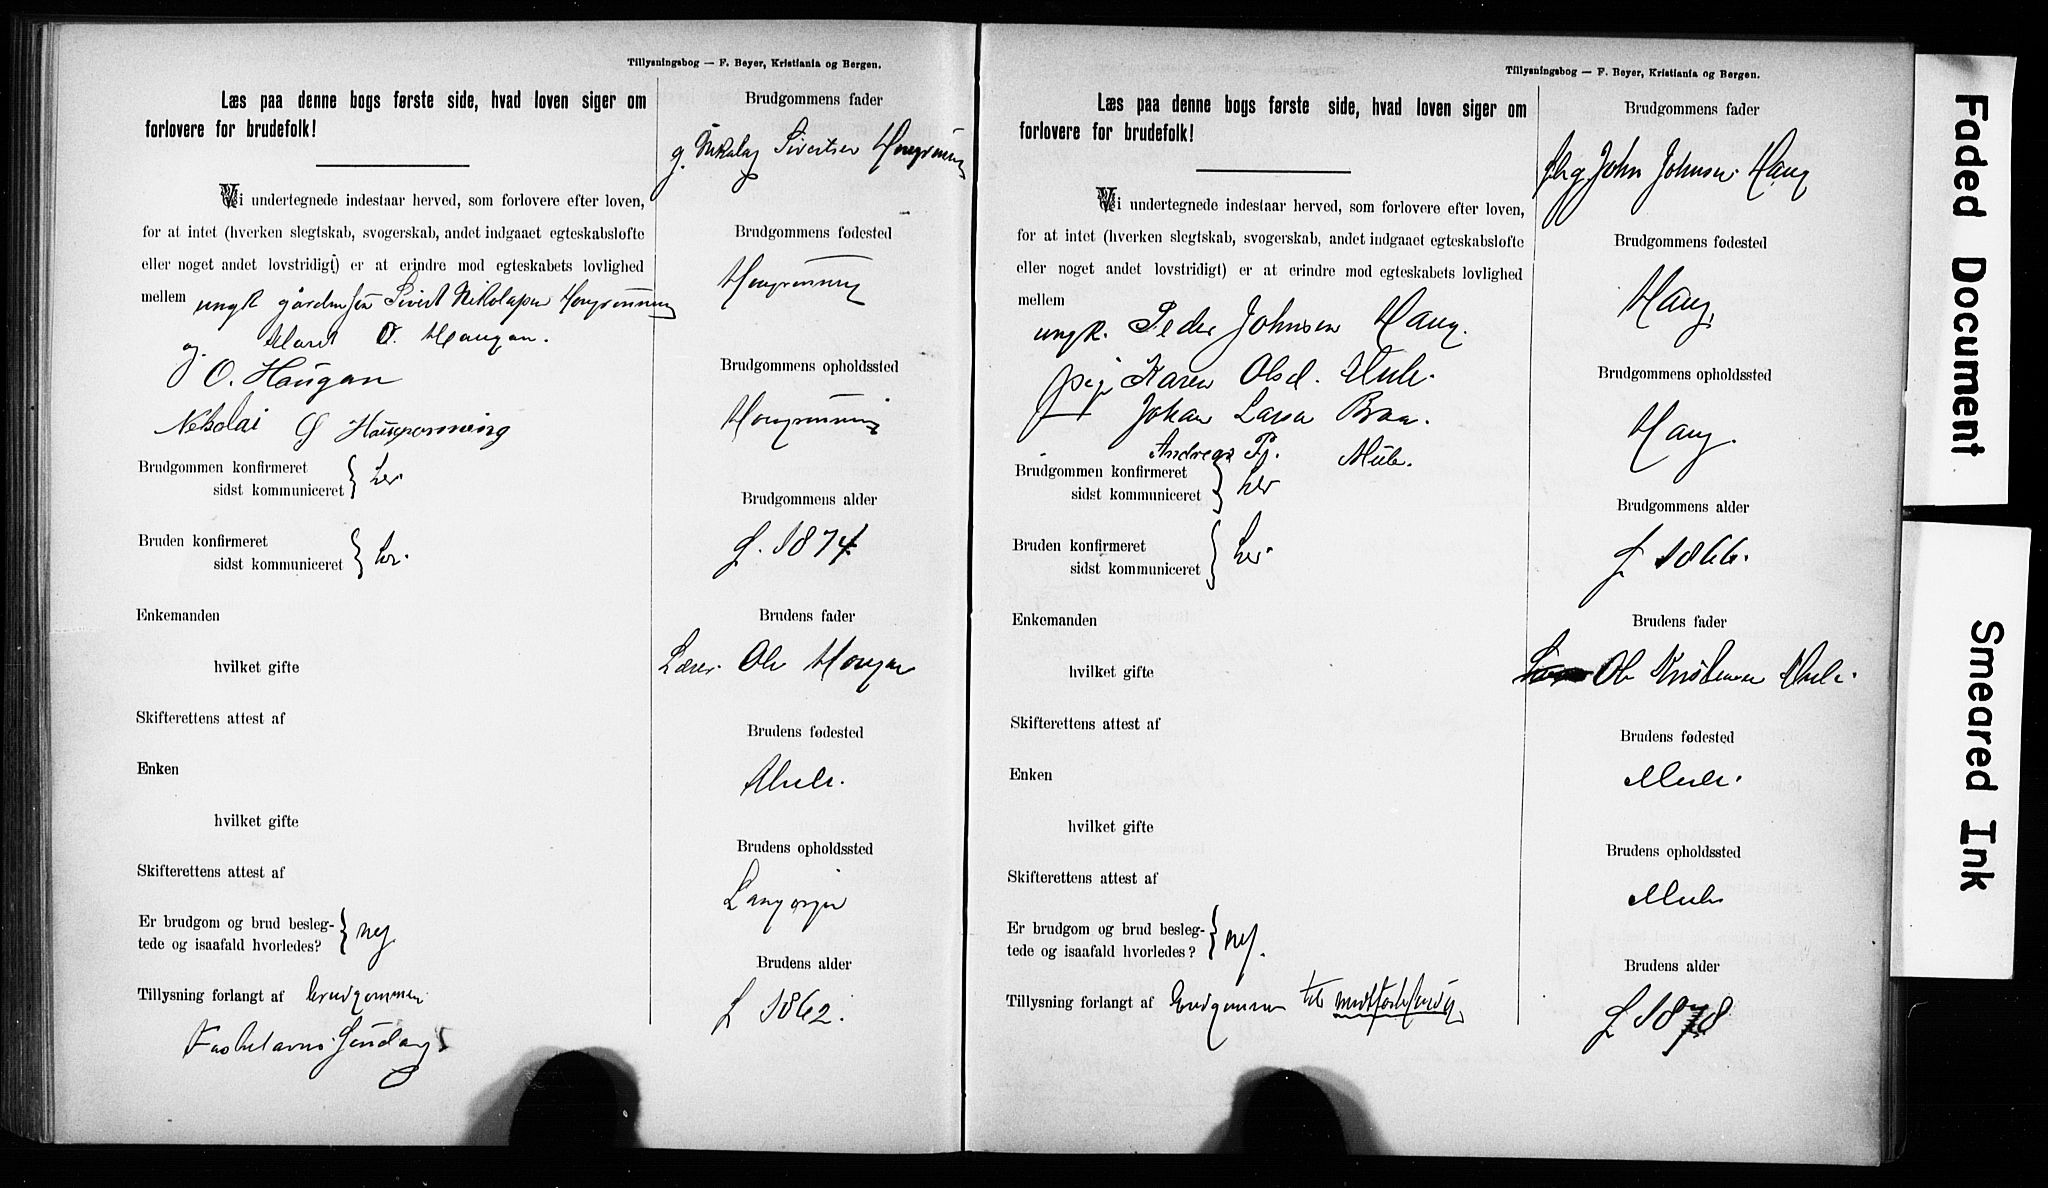 Tillysningsbog — F. Beyer, Kristiania og Bergen.
Læs paa denne bogs første side, hvad loven siger om
forlovere for brudefolk!
Vi undertegnede indestaar herved, som forlovere efter loven,
for at intet (hverken slegtskab, svogerskab, andet indgaaet egteskabsløfte
eller noget andet lovstridigt) er at erindre mod egteskabets lovlighed
mellem ungk Sivert Nikolajsen
og Maret O. Haugan.
O. Haugan
Nekolai
Brudgommen konfirmeret
sidst kommuniceret } her
Bruden konfirmeret
sidst kommuniceret } her
Enkemanden
hvilket gifte
Skifterettens attest af
Enken
hvilket gifte
Skifterettens attest af
Er brudgom og brud besleg-
tede og isaafald hvorledes? } nej
Tillysning forlangt af Brudgommen
Brudgommens fader
g. Nikolaj Sivertsen
Brudgommens fødested
Brudgommens opholdssted
Brudgommens alder
f. 1874
Brudens fader
Lærer Ole Haugan
Brudens fødested
Mule.
Brudens opholdssted
Brudens alder
f 1862.
Tillysningsbog — F. Beyer, Kristiania og Bergen.
Læs paa denne bogs første side, hvad loven siger om
forlovere for brudefolk!
Vi undertegnede indestaar herved, som forlovere efter loven,
for at intet (hverken slegtskab, svogerskab, andet indgaaet egteskabsløfte
eller noget andet lovstridigt) er at erindre mod egteskabets lovlighed
mellem
ungk. Peder Johnsen Haug.
pige Karen Olsd. Mule.
Johan Larsen Braa.
Andreas P. Mule.
Brudgommen konfirmeret
sidst kommuniceret } her
Bruden konfirmeret
sidst kommuniceret } her
Enkemanden
hvilket gifte
Skifterettens attest af
Enken
hvilket gifte
Skifterettens attest af
Er brudgom og brud besleg-
tede og isaafald hvorledes? } nej.
Tillysning forlangt af Brudgommen til
Brudgommens fader
John Johnsen Haug
Brudgommens fødested
Haug.
Brudgommens opholdssted
Haug.
Brudgommens alder
f 1866.
Brudens fader
Ole Kristensen Mule.
Brudens fødested
Mule.
Brudens opholdssted
Mule
Brudens alder
f 1878
Faded Document
Smeared Ink